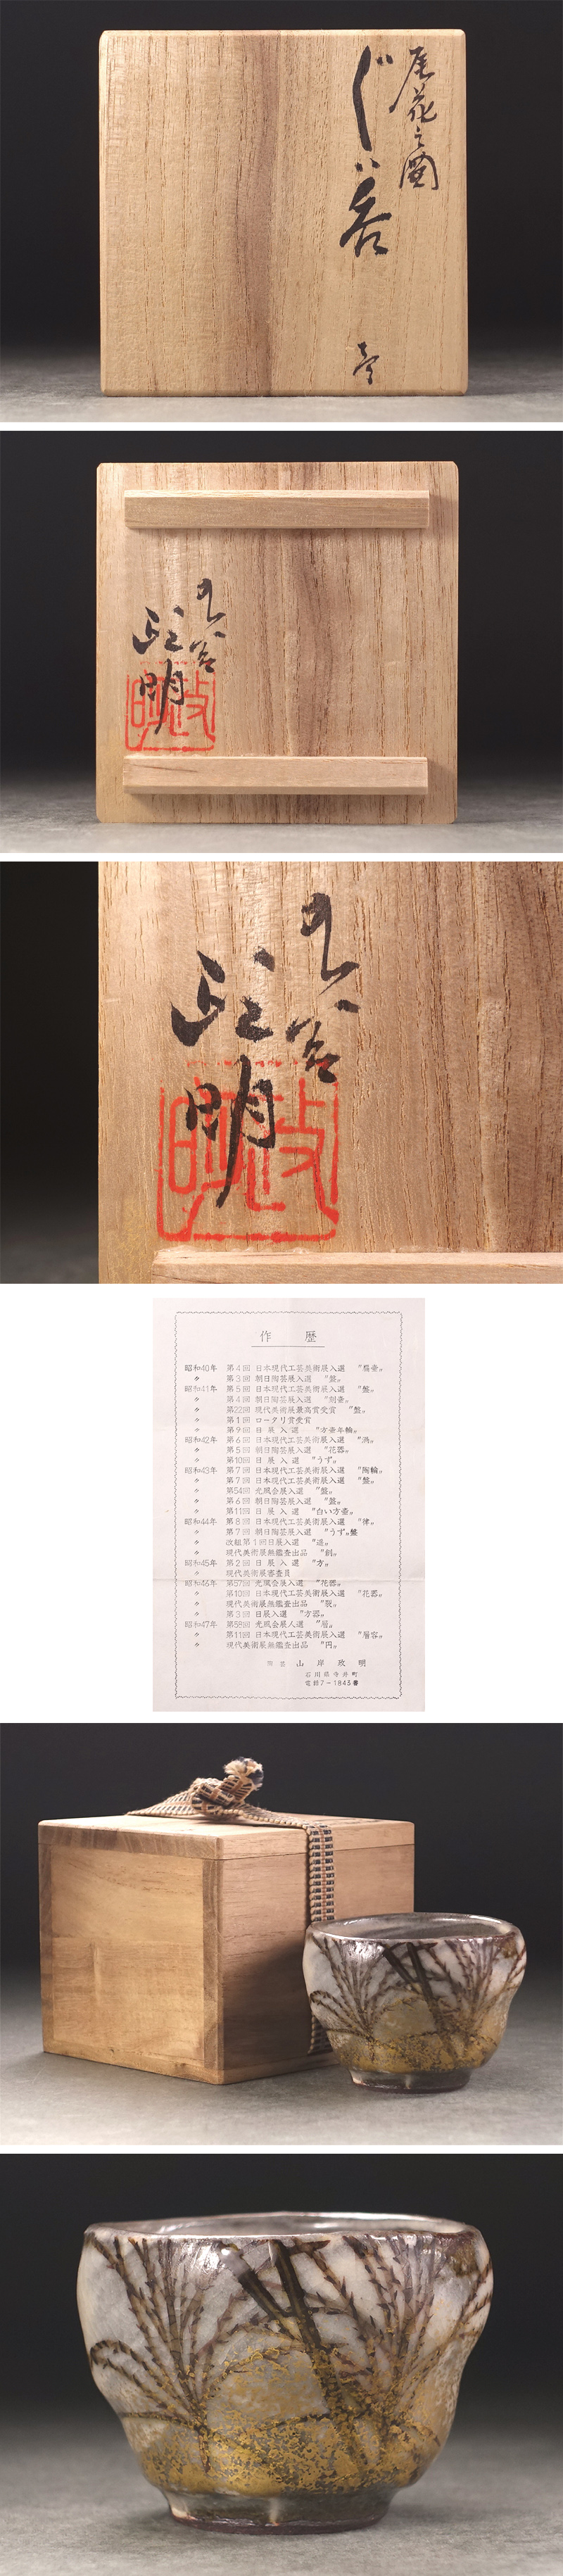 尾花之圖
ぐい呑
壹
九谷
政明
政明
九谷
政明
政明
作歴
昭和40年 第4回 日本現代工芸美術展入選 〝楷壷〟
〃 第3回 朝日陶芸展入選 〝盤〟
昭和41年 第5回 日本現代工芸美術展入選 〝盤〟
〃 第4回 朝日陶芸展入選 〝刻壷〟
〃 第22回 現代美術展最高賞受賞 〝盤〟
〃 第1回 ロータリ賞受賞
〃 第9回 日展入選 〝方壷年輪〟
昭和42年 第6回 日本現代工芸美術展入選 〝渦〟
〃 第5回 朝日陶芸展入選 〝花器〟
〃 第10回 日展入選 〝うず〟
昭和43年 第7回 日本現代工芸美術展入選 〝陶輪〟
〃 第7回 日本現代工芸美術展入選 〝盤〟
〃 第54回 光風会展入選 〝盤〟
〃 第6回 朝日陶芸展入選 〝盤〟
〃 第11回 日展入選 〝白い方壷〟
昭和44年 第8回 日本現代工芸美術展入選 〝律〟
〃 第7回 朝日陶芸展入選 〝うず〟盤
〃 改組第1回日展入選 〝道〟
〃 現代美術展無鑑査出品 〝創〟
昭和45年 第2回 日展入選 〝方〟
〃 現代美術展審査員
昭和46年 第57回 光風会展入選 〝花器〟
〃 第10回 日本現代工芸美術展入選 〝花器〟
〃 現代美術展無鑑査出品 〝脱〟
〃 第3回 日展入選 〝方器〟
昭和47年 第58回 光風会展入選 〝層〟
〃 第11回 日本現代工芸美術展入選 〝層容〟
〃 現代美術展無鑑査出品 〝円〟
陶芸 山岸政明
石川県寺井町
電話7-1843番